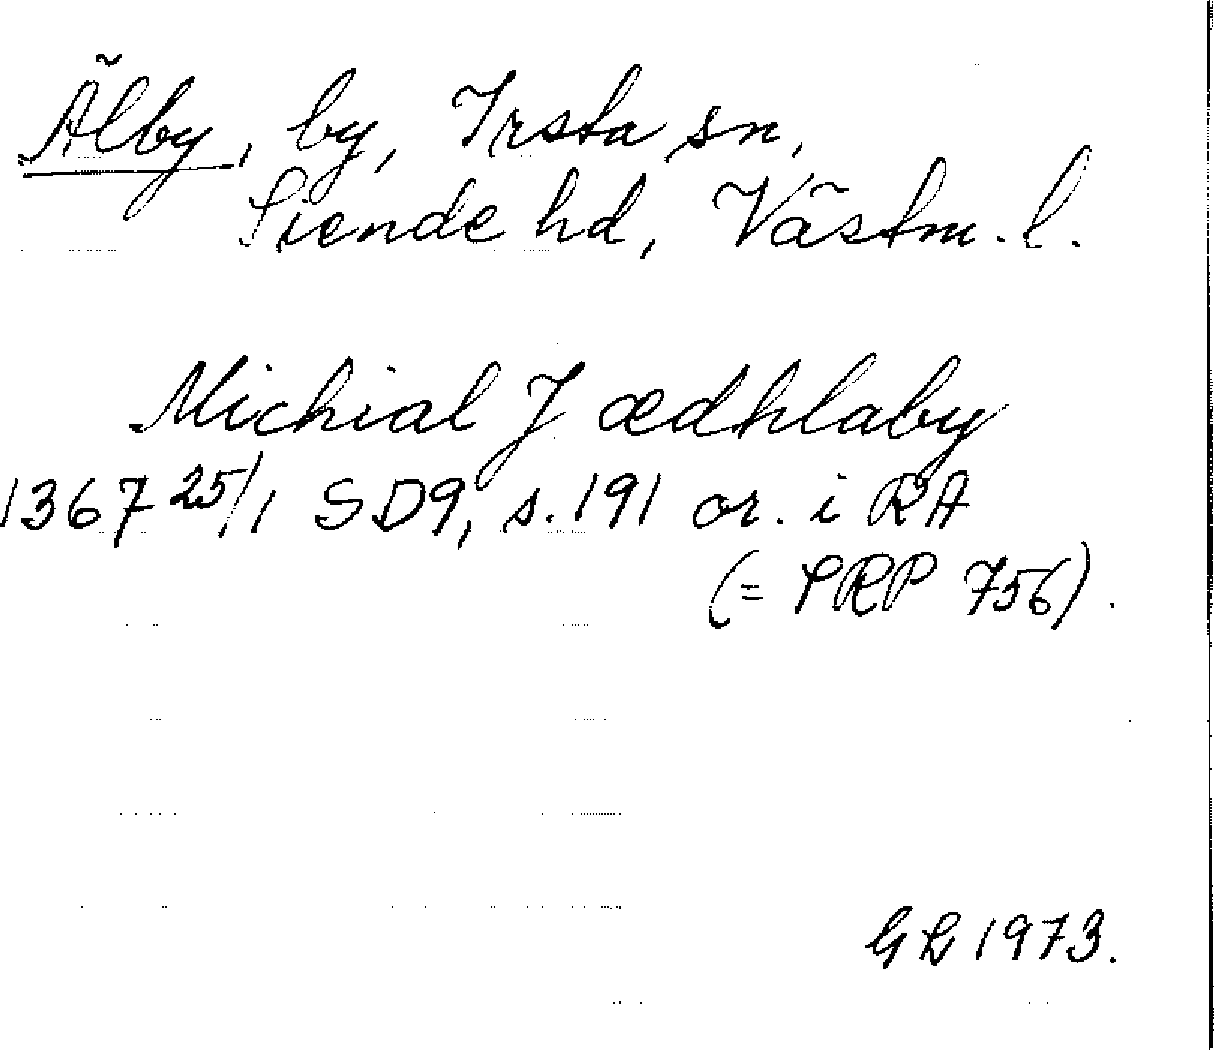 Älby, by, Irsta sn,
Siende hd, Västm. l.
Michial J ædhlaby
1367 25/1 SD9, s. 191 or. i RA
(= SRP 756).
GL 1973.